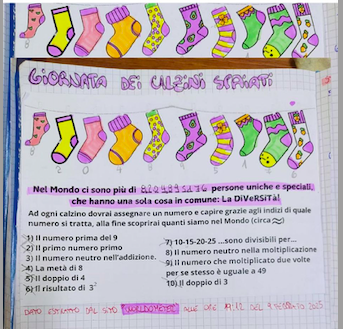 GIORNATA DEI CALZINI SPAIATI
Nel Mondo ci sono più di persone uniche e speciali,
che hanno una sola cosa in comune: La DiVeRSiTà!
Ad ogni calzino dovrai assegnare un numero e capire grazie agli indizi di quale
numero si tratta, alla fine scoprirai quanti siamo nel Mondo (circa ≈)
1) Il numero prima del 9
2) Il primo numero primo
3) Il numero neutro nell'addizione.
4) La metà di 8
5) Il doppio di 4
6) Il risultato di 3²
7) 10-15-20-25 ...sono divisibili per...
8) Il numero neutro nella moltiplicazione
9) Il numero che moltiplicato due volte
per se stesso è uguale a 49
10) Il doppio di 3
DATO ESTRATTO DAL SITO WORLDOMETER ALLE ORE 19:12 DEL 2025